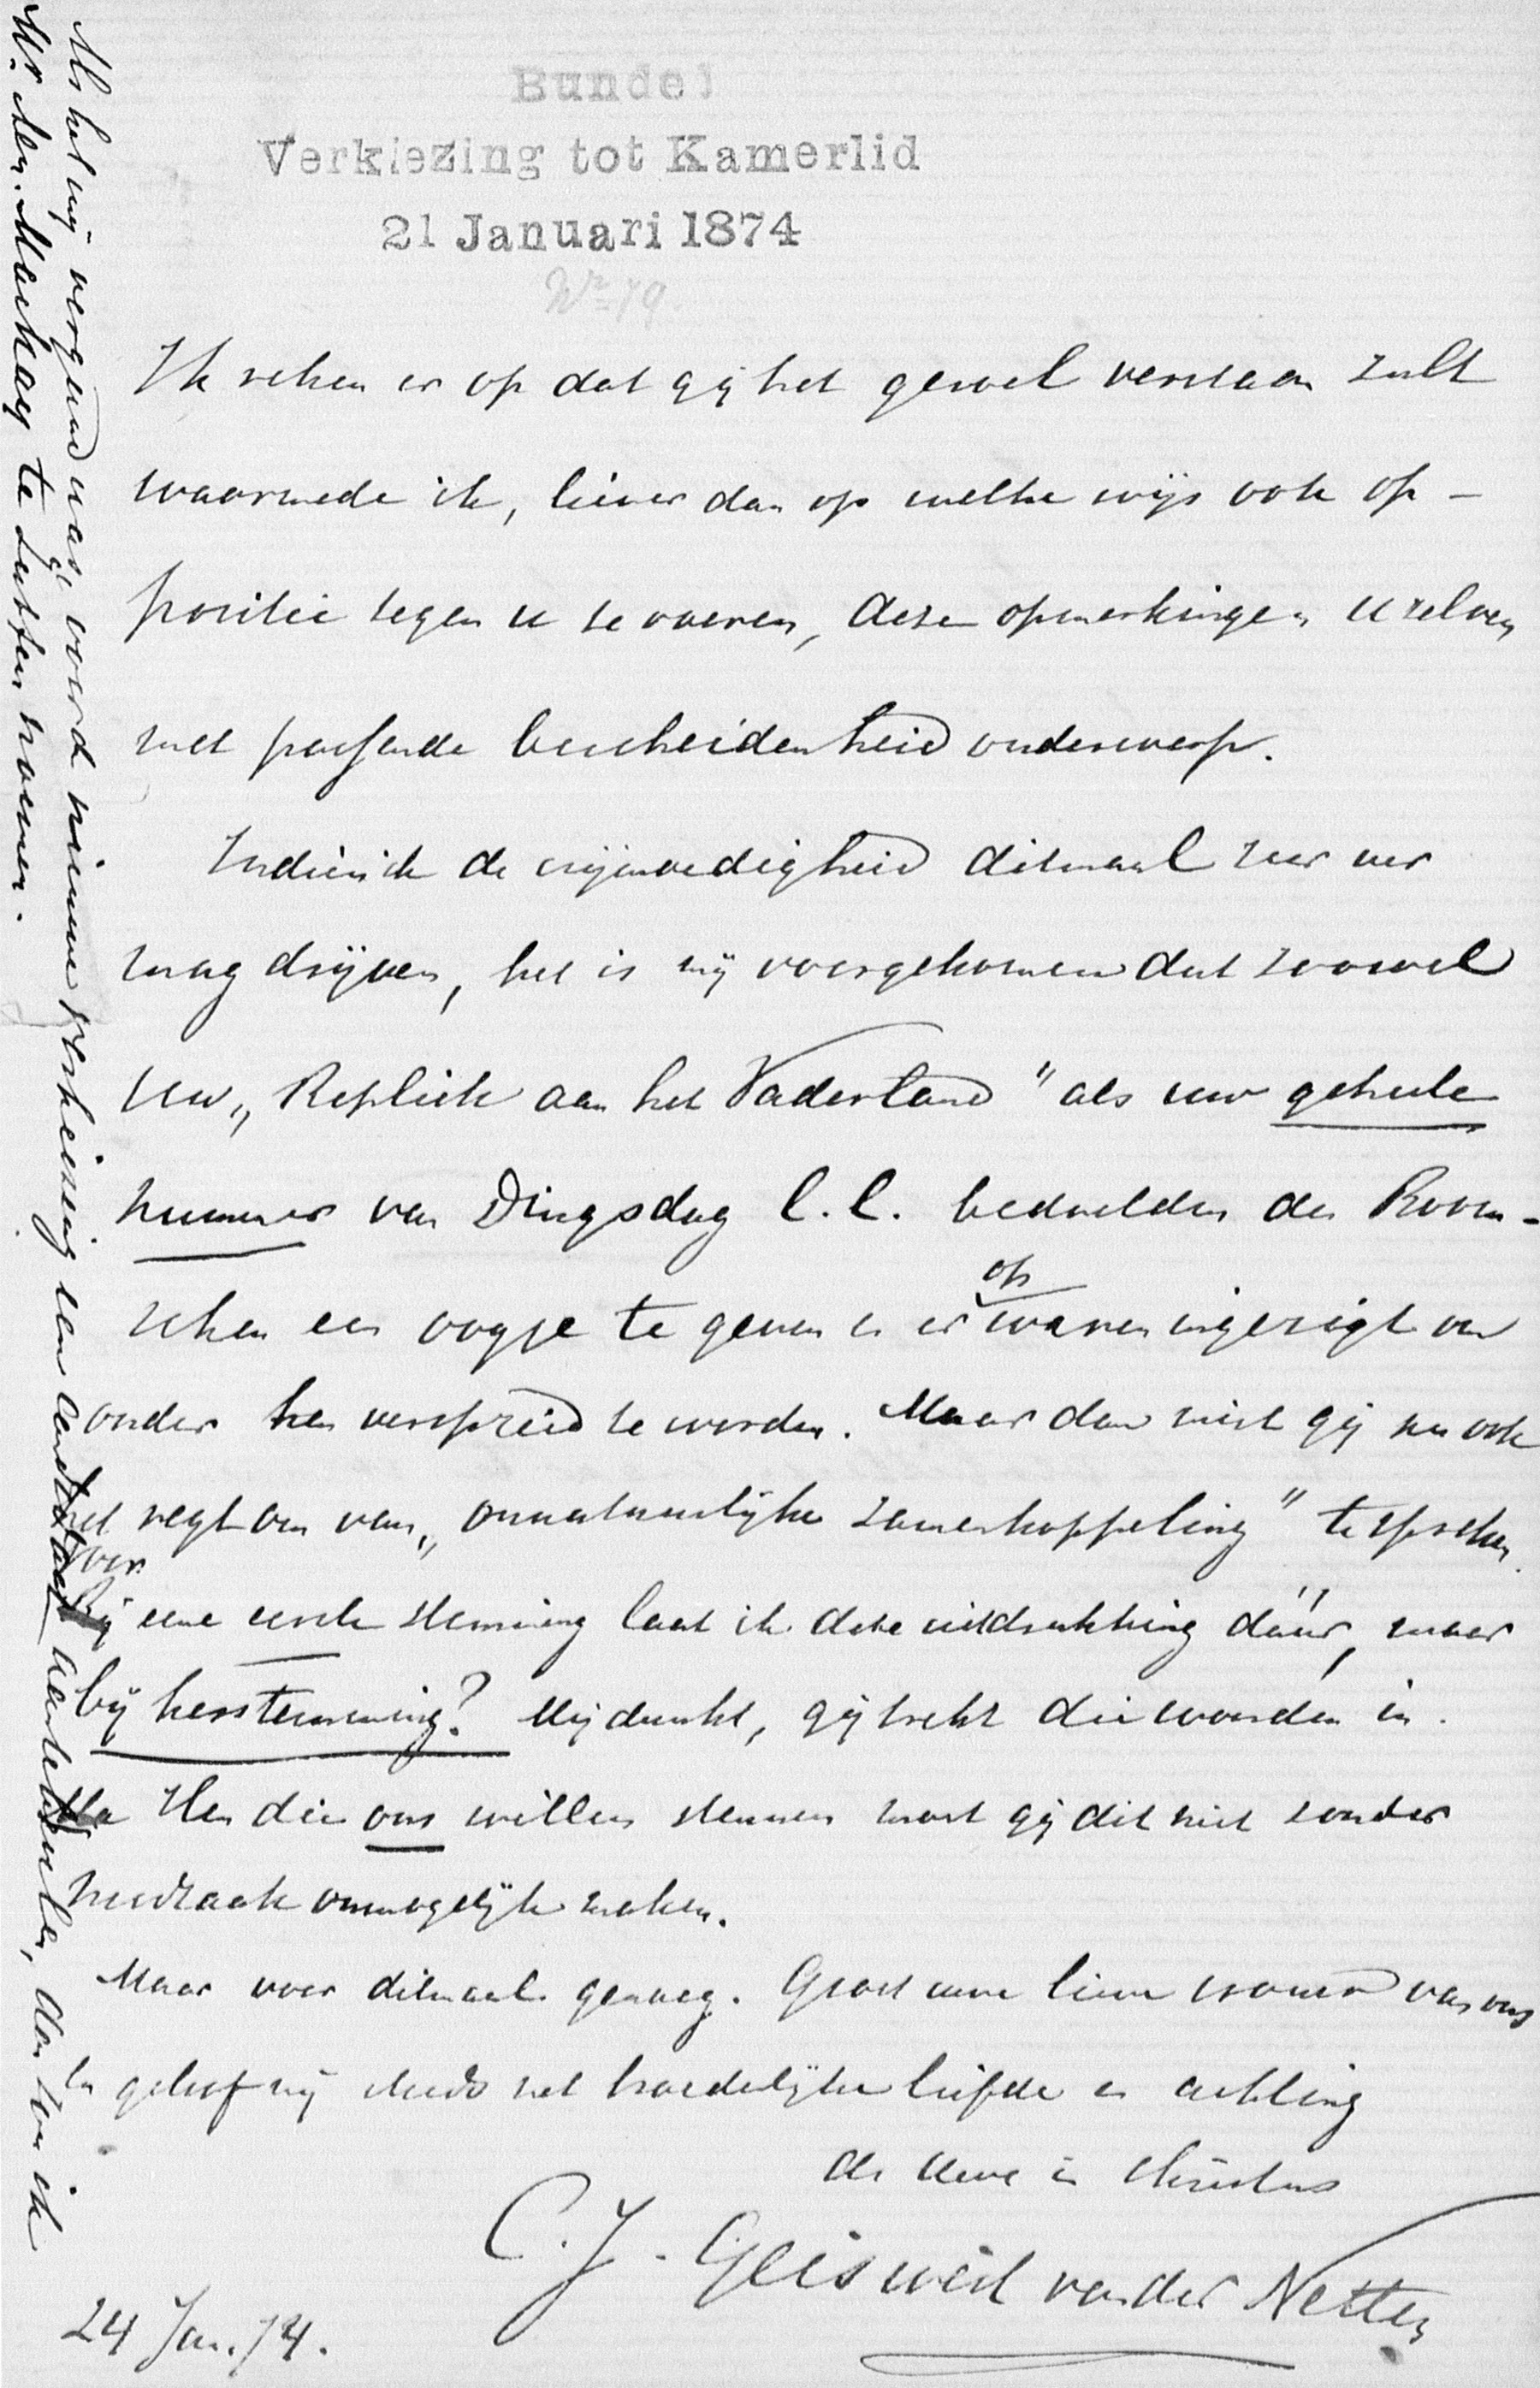 Bundel
Verkiezing tot Kamerlid
21 Januari 1874
No 79.
Ik reken er op dat gij het gevoel verstaan zult
waarmede ik, liever dan op welke wijs ook op-
positie tegen u te voeren, deze opmerkingen u zelven
met passende bescheidenheid onderwerp.
Indien ik de vrijmoedigheid ditmaal zeer ver
mag drijven, het is mij voorgekomen dat zoowel
uw „Repliek aan het Vaderland" als uw geheele
nummer van Dingsdag l.l. bedoelden den Room-
schen een oogje te geven en er op waren ingerigt om
onder hen verspreid te worden. Maar dan mist gij nu ook
het regt om van „onnatuurlijke zamenkoppeling" te spreken.
Voor eene eerste stemming laat ik deze uitdrukking dáár, maar
bij herstemming? Mij dunkt, gij trekt die woorden in.
Hen die ons willen steunen moet gij dit niet zonder
noodzaak onmogelijk maken.
Maar voor ditmaal genoeg. Groet uwe lieve vrouw van ons
en geloof mij steeds met broederlijke liefde en achting
de Uwe in Christus
C. J. Geisweit van der Netten
24 Jan. 74.
Als het mij vergund was, voord nieuwe verkiezing een candidaat aantebevelen, dan zou ik
Mr Aen. Mackay te Zutfen noemen.